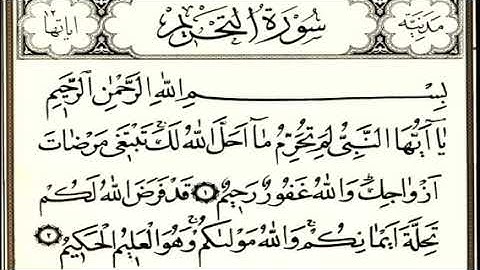 مدنية سورة التحريم اياتها ١٢
بِسْمِ اللهِ الرَّحْمٰنِ الرَّحِيمِ
يَاۤ اَيُّهَا النَّبِيُّ لِمَ تُحَرِّمُ مَاۤ اَحَلَّ اللهُ لَكَۚ تَبْتَغِي مَرْضَاتَ
اَزْوَاجِكَۜ وَاللهُ غَفُورٌ رَحِيمٌ ١ قَدْ فَرَضَ اللهُ لَكُمْ
تَحِلَّةَ اَيْمَانِكُمْۚ وَاللهُ مَوْلٰيكُمْۚ وَهُوَ الْعَلِيمُ الْحَكِيمُ ٢